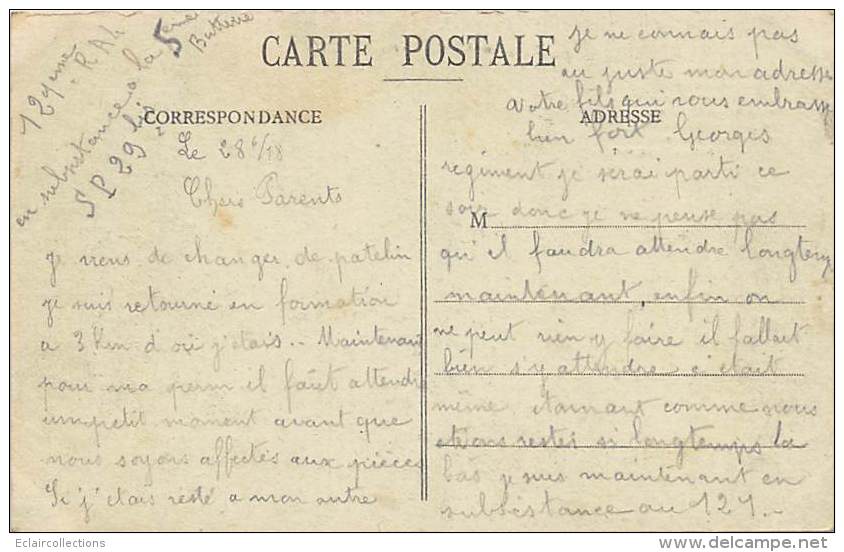 129eme R.A.L
5eme Batterie
en subsistance a la
SP 29 bis
CARTE POSTALE
CORRESPONDANCE
Le 28 6/18
Chers Parents
Je viens de changer de patelin
je suis retourné en formation
a 3 Km d'où j'étais .. Maintenant
pour ma perm il faut attendre
un petit moment avant que
nous soyons affectés aux pièces
Si j'étais resté a mon autre
ADRESSE
regiment je serai parti ce
M
soir donc je ne pense pas
qu'il faudra attendre longtemps
maintenant, enfin on
ne peut rien y faire il fallait
bien s'y attendre c'était
même étonnant comme nous
étions restés si longtemps la
bas je suis maintenant en
subsistance au 121.-
je ne connais pas
au juste mon adresse
votre fils qui vous embrasse
bien fort Georges
Eclaircollections
www.delcampe.net